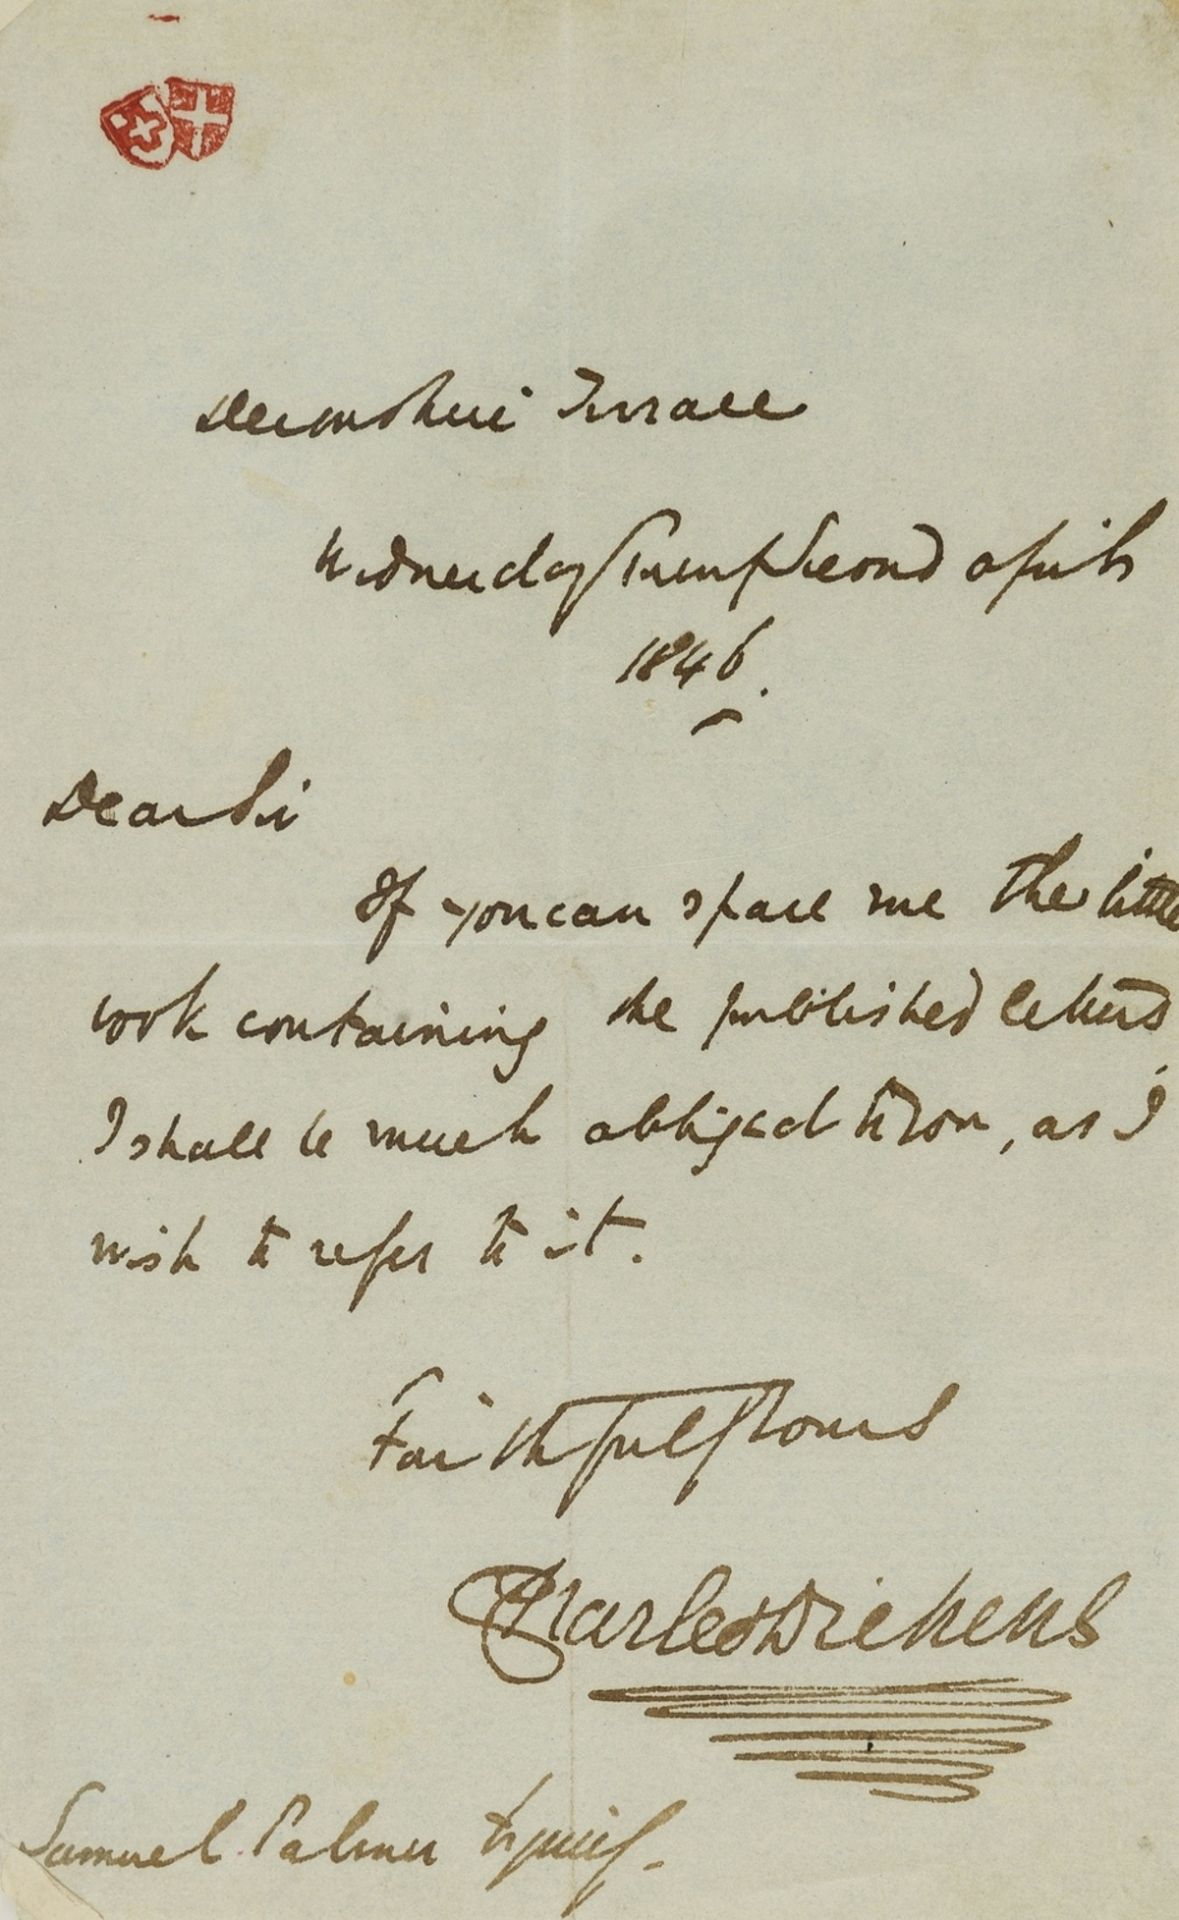 Devonshire Terrace
Wednesday Twenty Second April
1846.
Dear Sir
If you can spare me the little
book containing the published letters,
I shall be much obliged to you, as I
wish to refer to it.
Faithfully Yours
Charles Dickens
Samuel Palmer Esquire.